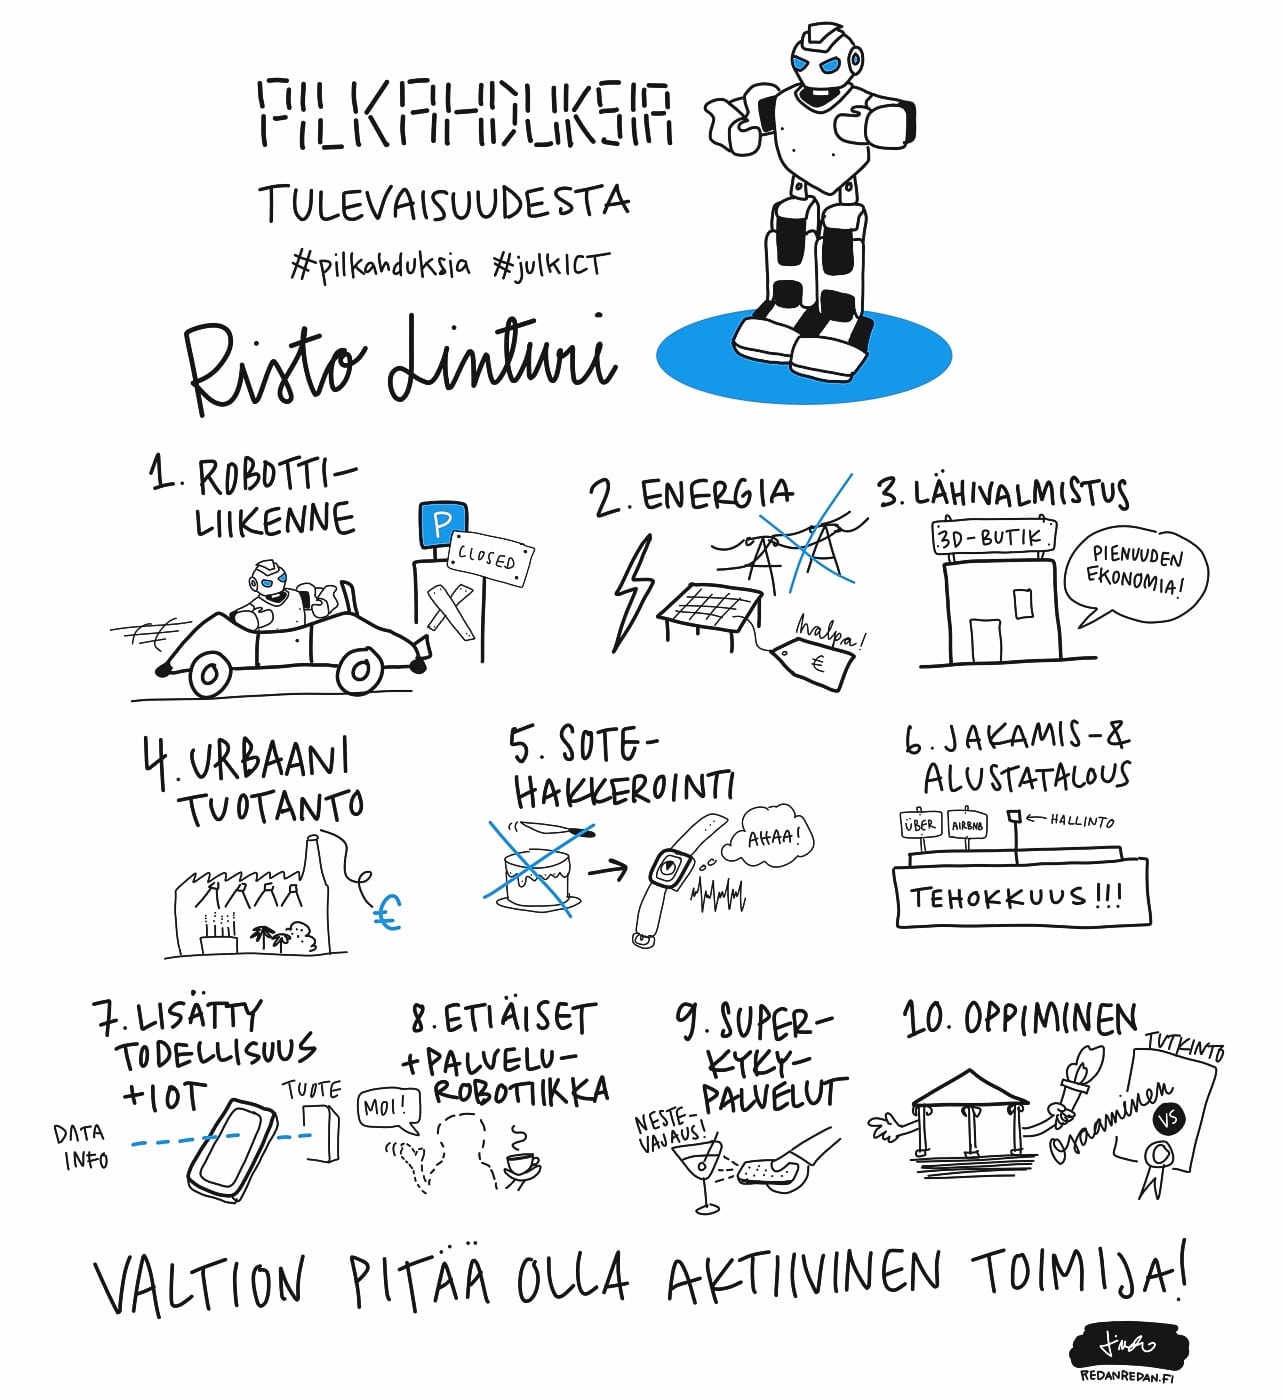 PILKAHDUKSIA
TULEVAISUUDESTA
#pilkahduksia #julkICT
Risto Linturi
1. ROBOTTI-
LIIKENNE
P
CLOSED
2. ENERGIA
halpa!
€
3. LÄHIVALMISTUS
3D-BUTIK
PIENUUDEN
EKONOMIA!
4. URBAANI
TUOTANTO
€
5. SOTE-
HAKKEROINTI
AHAA!
6. JAKAMIS-&
ALUSTATALOUS
ÜBER
AIRBNB
HALLINTO
TEHOKKUUS!!!
7. LISÄTTY
TODELLISUUS
+IOT
TUOTE
DATA
INFO
8. ETIÄISET
+PALVELU-
ROBOTIIKKA
MOI!
9. SUPER-
KYKY-
PALVELUT
NESTE-
VAJAUS!
10. OPPIMINEN
TUTKINTO
osaaminen
VS
VALTION PITÄÄ OLLA AKTIIVINEN TOIMIJA!
REDANREDAN.FI